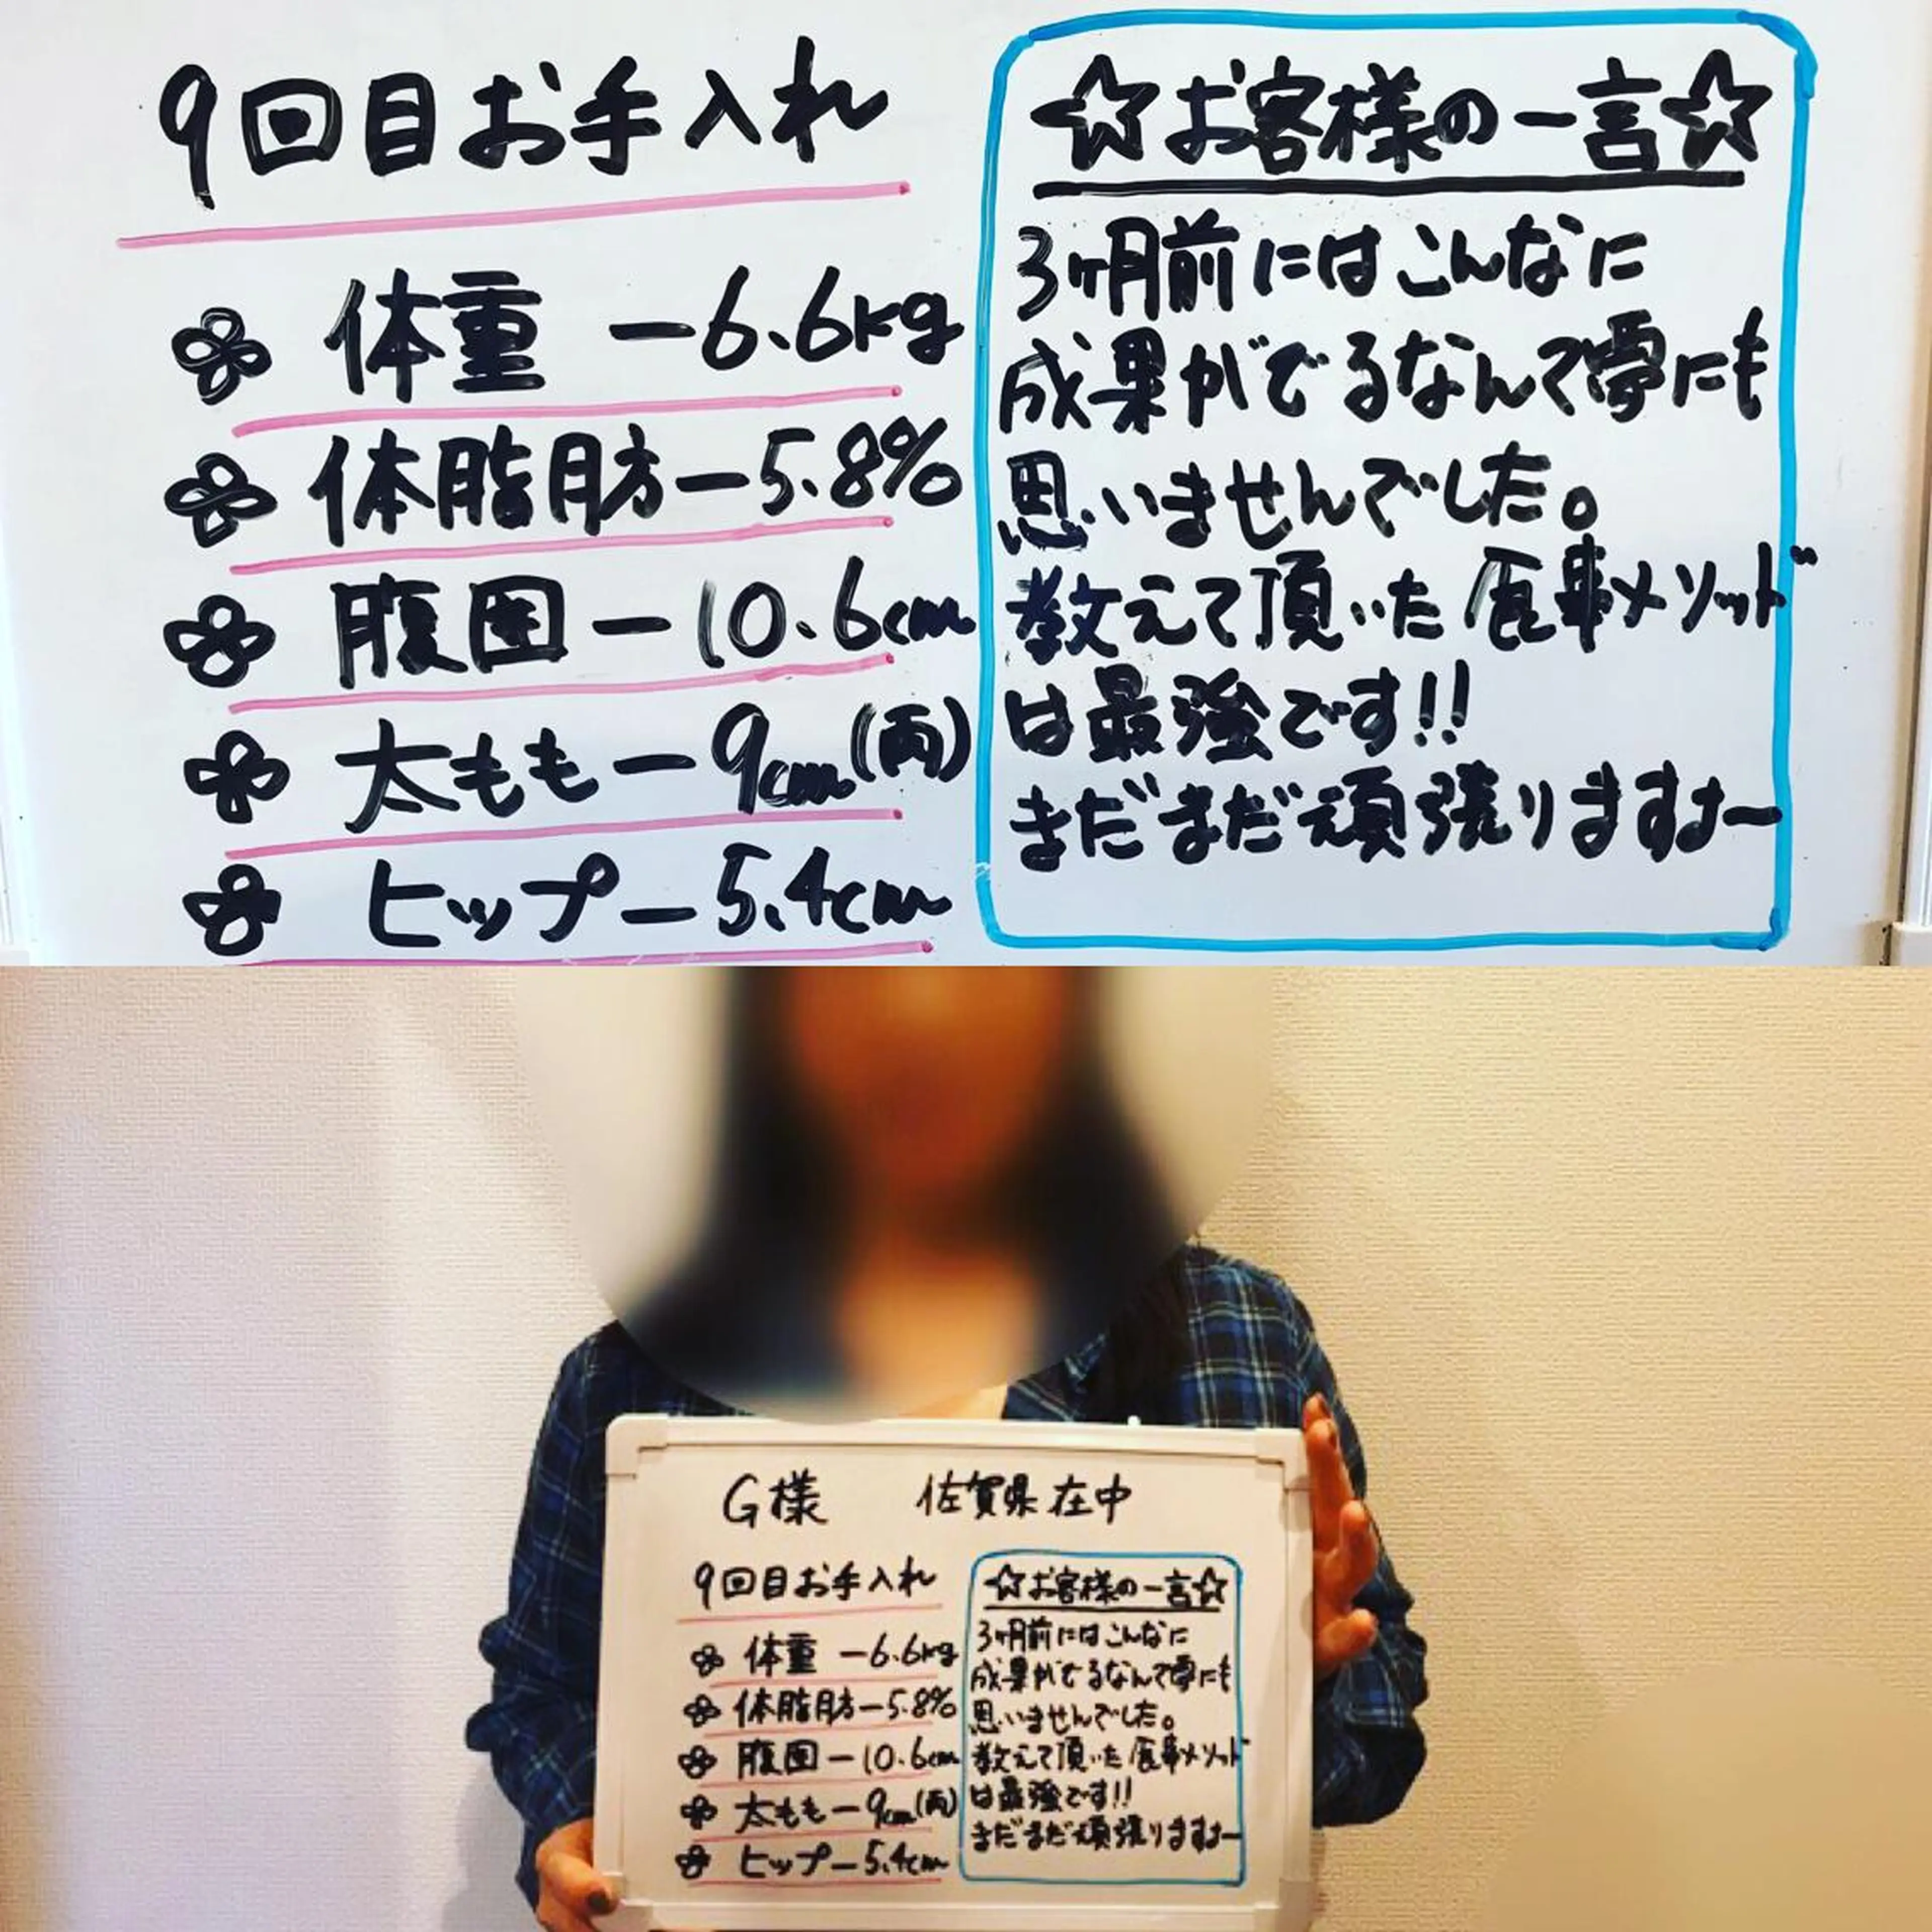 9回目お手入れ
体重 −6.6kg
体脂肪−5.8%
腹囲−10.6cm
太もも−9cm(両)
ヒップ−5.4cm
☆お客様の一言☆
3ヶ月前にはこんなに
成果がでるなんて夢にも
思いませんでした。
教えて頂いた食事メソッド
は最強です!!
まだまだ頑張りますよー
G様 佐賀県在中
9回目お手入れ
体重 −6.6kg
体脂肪−5.8%
腹囲−10.6cm
太もも−9cm(両)
ヒップ−5.4cm
☆お客様の一言☆
3ヶ月前にはこんなに
成果がでるなんて夢にも
思いませんでした。
教えて頂いた食事メソッド
は最強です!!
まだまだ頑張りますよー